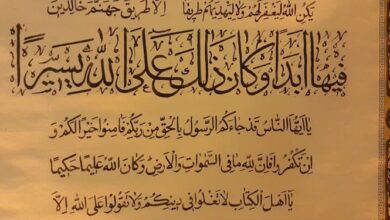 يَكُنِ اللّٰهُ لِيَغْفِرَ لَهُمْ وَلَا لِيَهْدِيَهُمْ طَرِيقًا اِلَّا طَرِيقَ جَهَنَّمَ خَالِدِينَ
فِيهَا اَبَدًا وَكَانَ ذٰلِكَ عَلَى اللّٰهِ يَسِيرًا
يَا اَيُّهَا النَّاسُ قَدْ جَاءَكُمُ الرَّسُولُ بِالْحَقِّ مِنْ رَبِّكُمْ فَاٰمِنُوا خَيْرًا لَكُمْ وَ
اِنْ تَكْفُرُوا فَاِنَّ لِلّٰهِ مَا فِى السَّمٰوَاتِ وَالْاَرْضِ وَكَانَ اللّٰهُ عَلِيمًا حَكِيمًا
يَا اَهْلَ الْكِتَابِ لَا تَغْلُوا فِى دِينِكُمْ وَلَا تَقُولُوا عَلَى اللّٰهِ اِلَّا